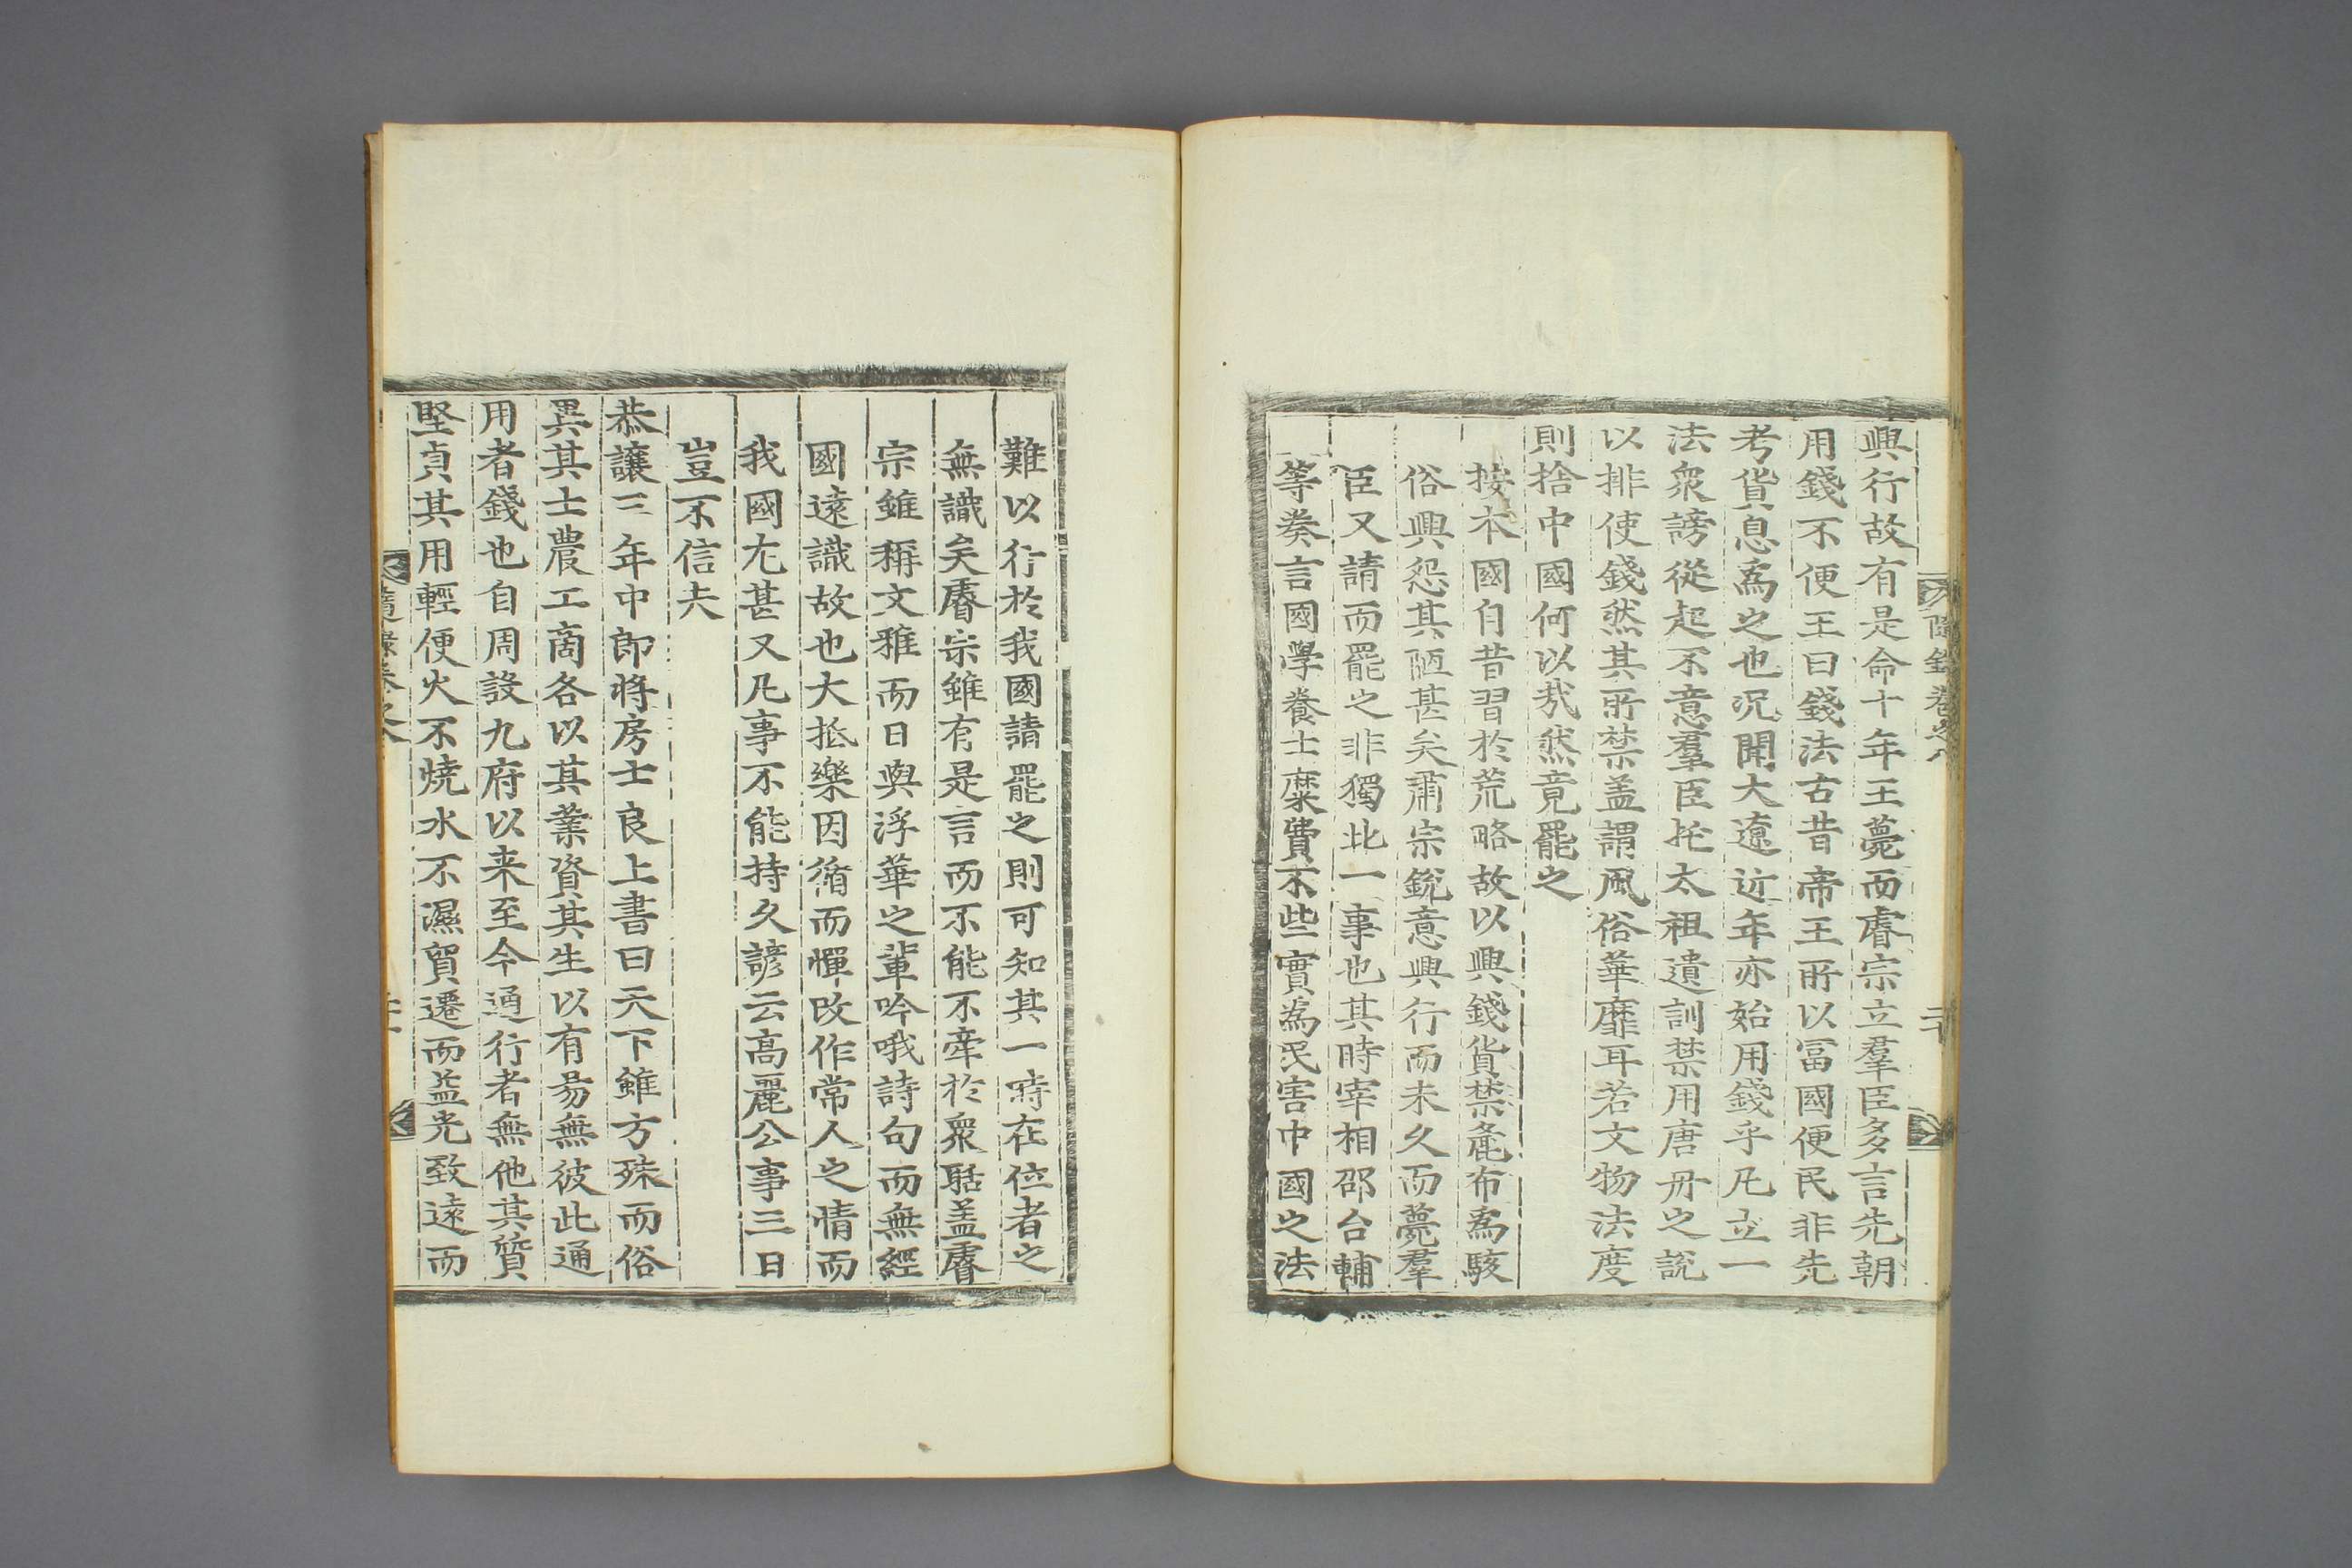 隨錄卷之八
二十
興行故有是命十年王薨而睿宗立羣臣多言先朝
用錢不便王曰錢法古昔帝王所以冨國便民非先
考貨息爲之也况聞大遼近年亦始用錢乎凡立一
法衆謗從起不意羣臣托太祖遺訓禁用唐丹之說
以排使錢然其所禁盖謂風俗華靡耳若文物法度
則捨中國何以㢤然竟罷之
按本國自昔習於荒略故以興錢貨禁麁布爲駭
俗興怨其陋甚矣肅宗銳意興行而未久而薨羣
臣又請而罷之非獨此一事也其時宰相邵台輔
等奏言國學養士糜費不些實爲民害中國之法
難以行於我國請罷之則可知其一時在位者之
無識矣睿宗雖有是言而不能不牽於衆聒盖睿
宗雖稱文雅而日與浮華之輩吟哦詩句而無經
國遠識故也大抵樂因循而憚改作常人之情而
我國尤甚又凡事不能持久諺云高麗公事三日
豈不信夫
恭讓三年中郞將房士良上書曰天下雖方殊而俗
異其士農工商各以其業資其生以有易無彼此通
用者錢也自周設九府以来至今通行者無他其質
堅貞其用輕便火不燒水不濕貿遷而益光致遠而
隨錄卷之八